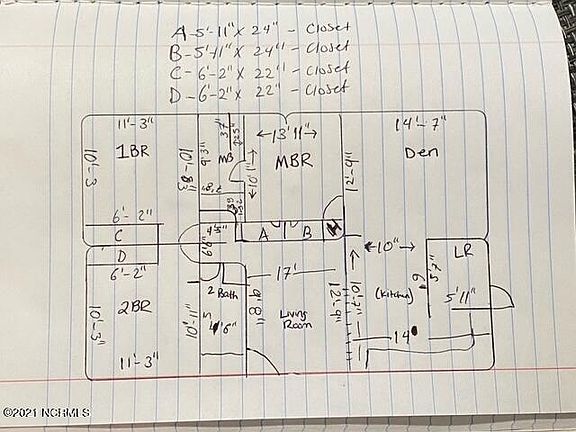 A - 5'-11" x 24" - Closet
B - 5'-11" x 24" - Closet
C - 6'-2" x 22" - Closet
D - 6'-2" x 22" - Closet
11'-3"
37"
←13'11"→
14'-7"
1BR
10'-3
10'-8"
9'-3"
MB
←10'1"→
MBR
Den
12'-9"
6'-2"
C
D
6'-2"
A
B
H
←10"→
LR
5'7"
5'11"
17'
2BR
10'-3"
11'-10"
2 Bath
9'8"
Living
Room
12'-9"
10'-7"
(kitchen)
11'-3"
14
©2021 NCRMLS